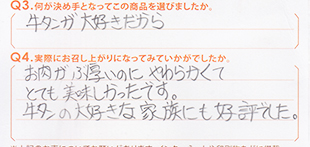 Q3.何が決め手となってこの商品を選びましたか。
牛タンが大好きだから
Q4.実際にお召し上がりになってみていかがでしたか。
お肉がぶ厚いのに やわらかくて
とても美味しかったです。
牛タンの大好きな家族にも好評でした。